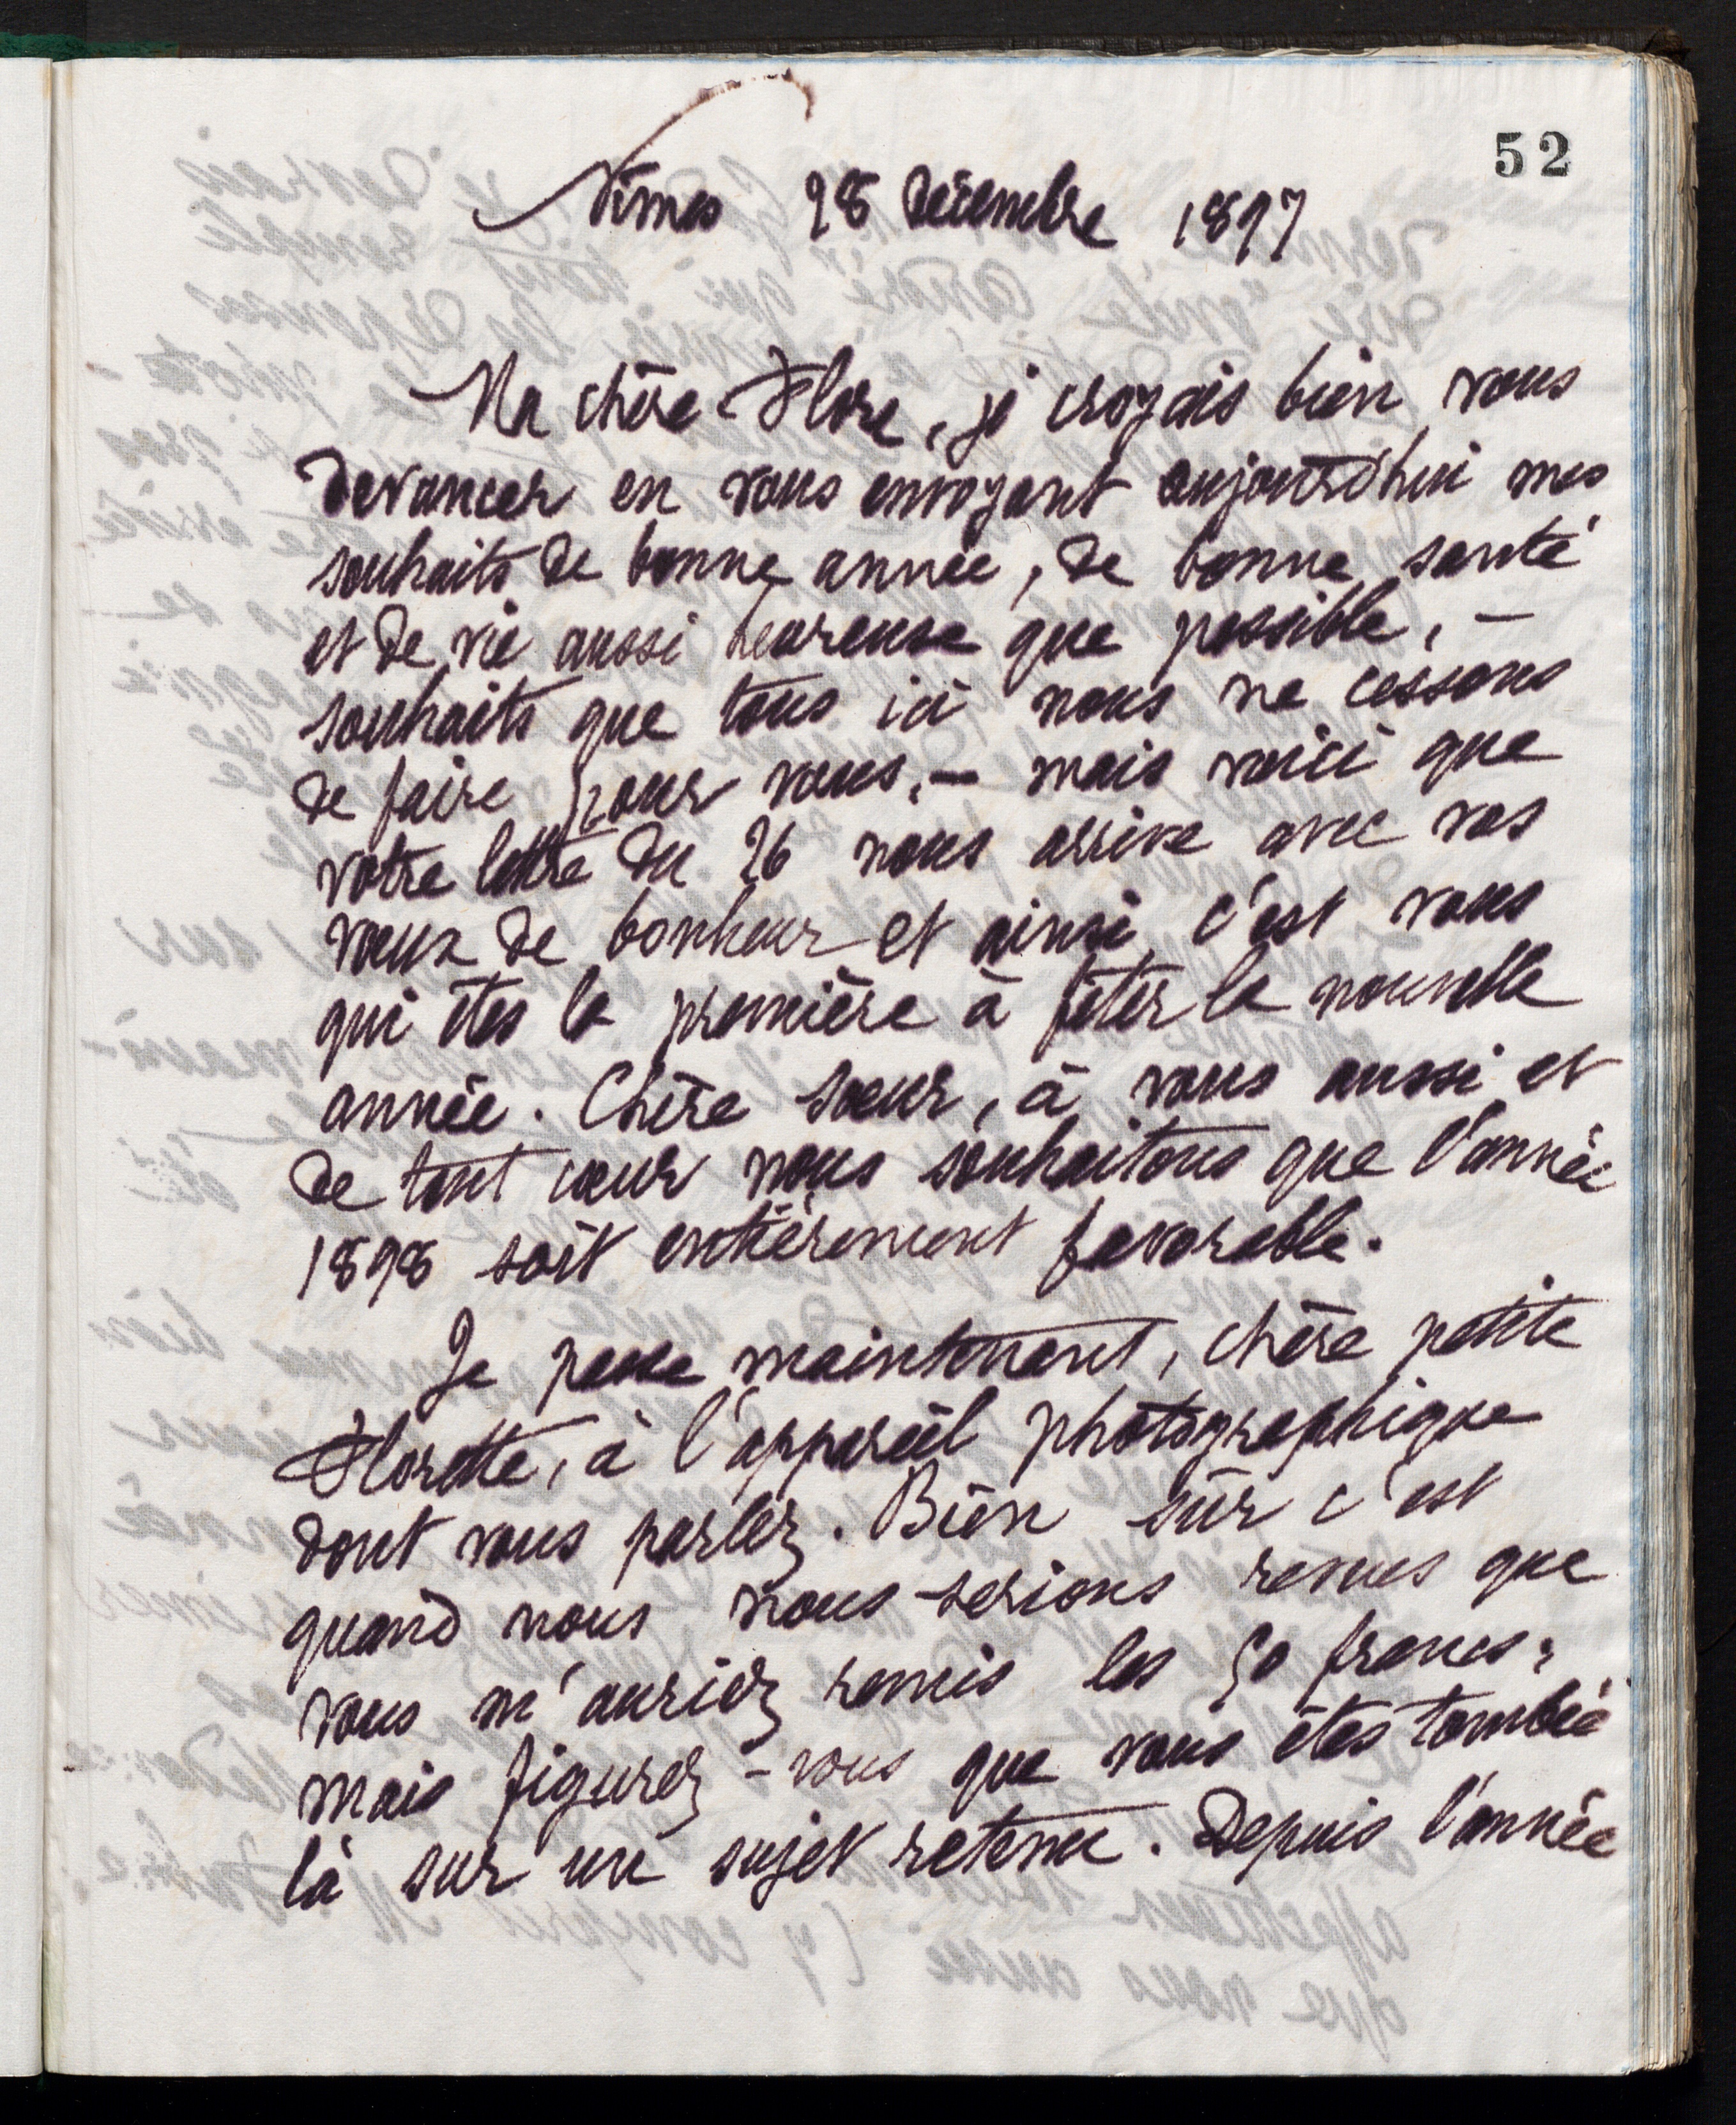 52
Nîmes 28 Décembre 1897
Ma chère Flore, je croyais bien vous
devancer en vous envoyant aujourd'hui mes
souhaits de bonne année, de bonne santé
et de vie aussi heureuse que possible, —
souhaits que tous ici nous ne cessons
de faire pour vous, — mais voici que
votre lettre du 26 nous arrive avec vos
vœux de bonheur et ainsi c'est vous
qui êtes la première à fêter la nouvelle
année. Chère sœur, à vous aussi et
de tout cœur nous souhaitons que l'année
1898 soit entièrement favorable.
Je passe maintenant, chère petite
Florette, à l'appareil photographique
dont vous parlez. Bien sûr c'est
quand nous nous serions revues que
vous m'auriez remis les 50 francs;
mais figurez-vous que vous êtes tombée
là sur un sujet retenu. Depuis l'année